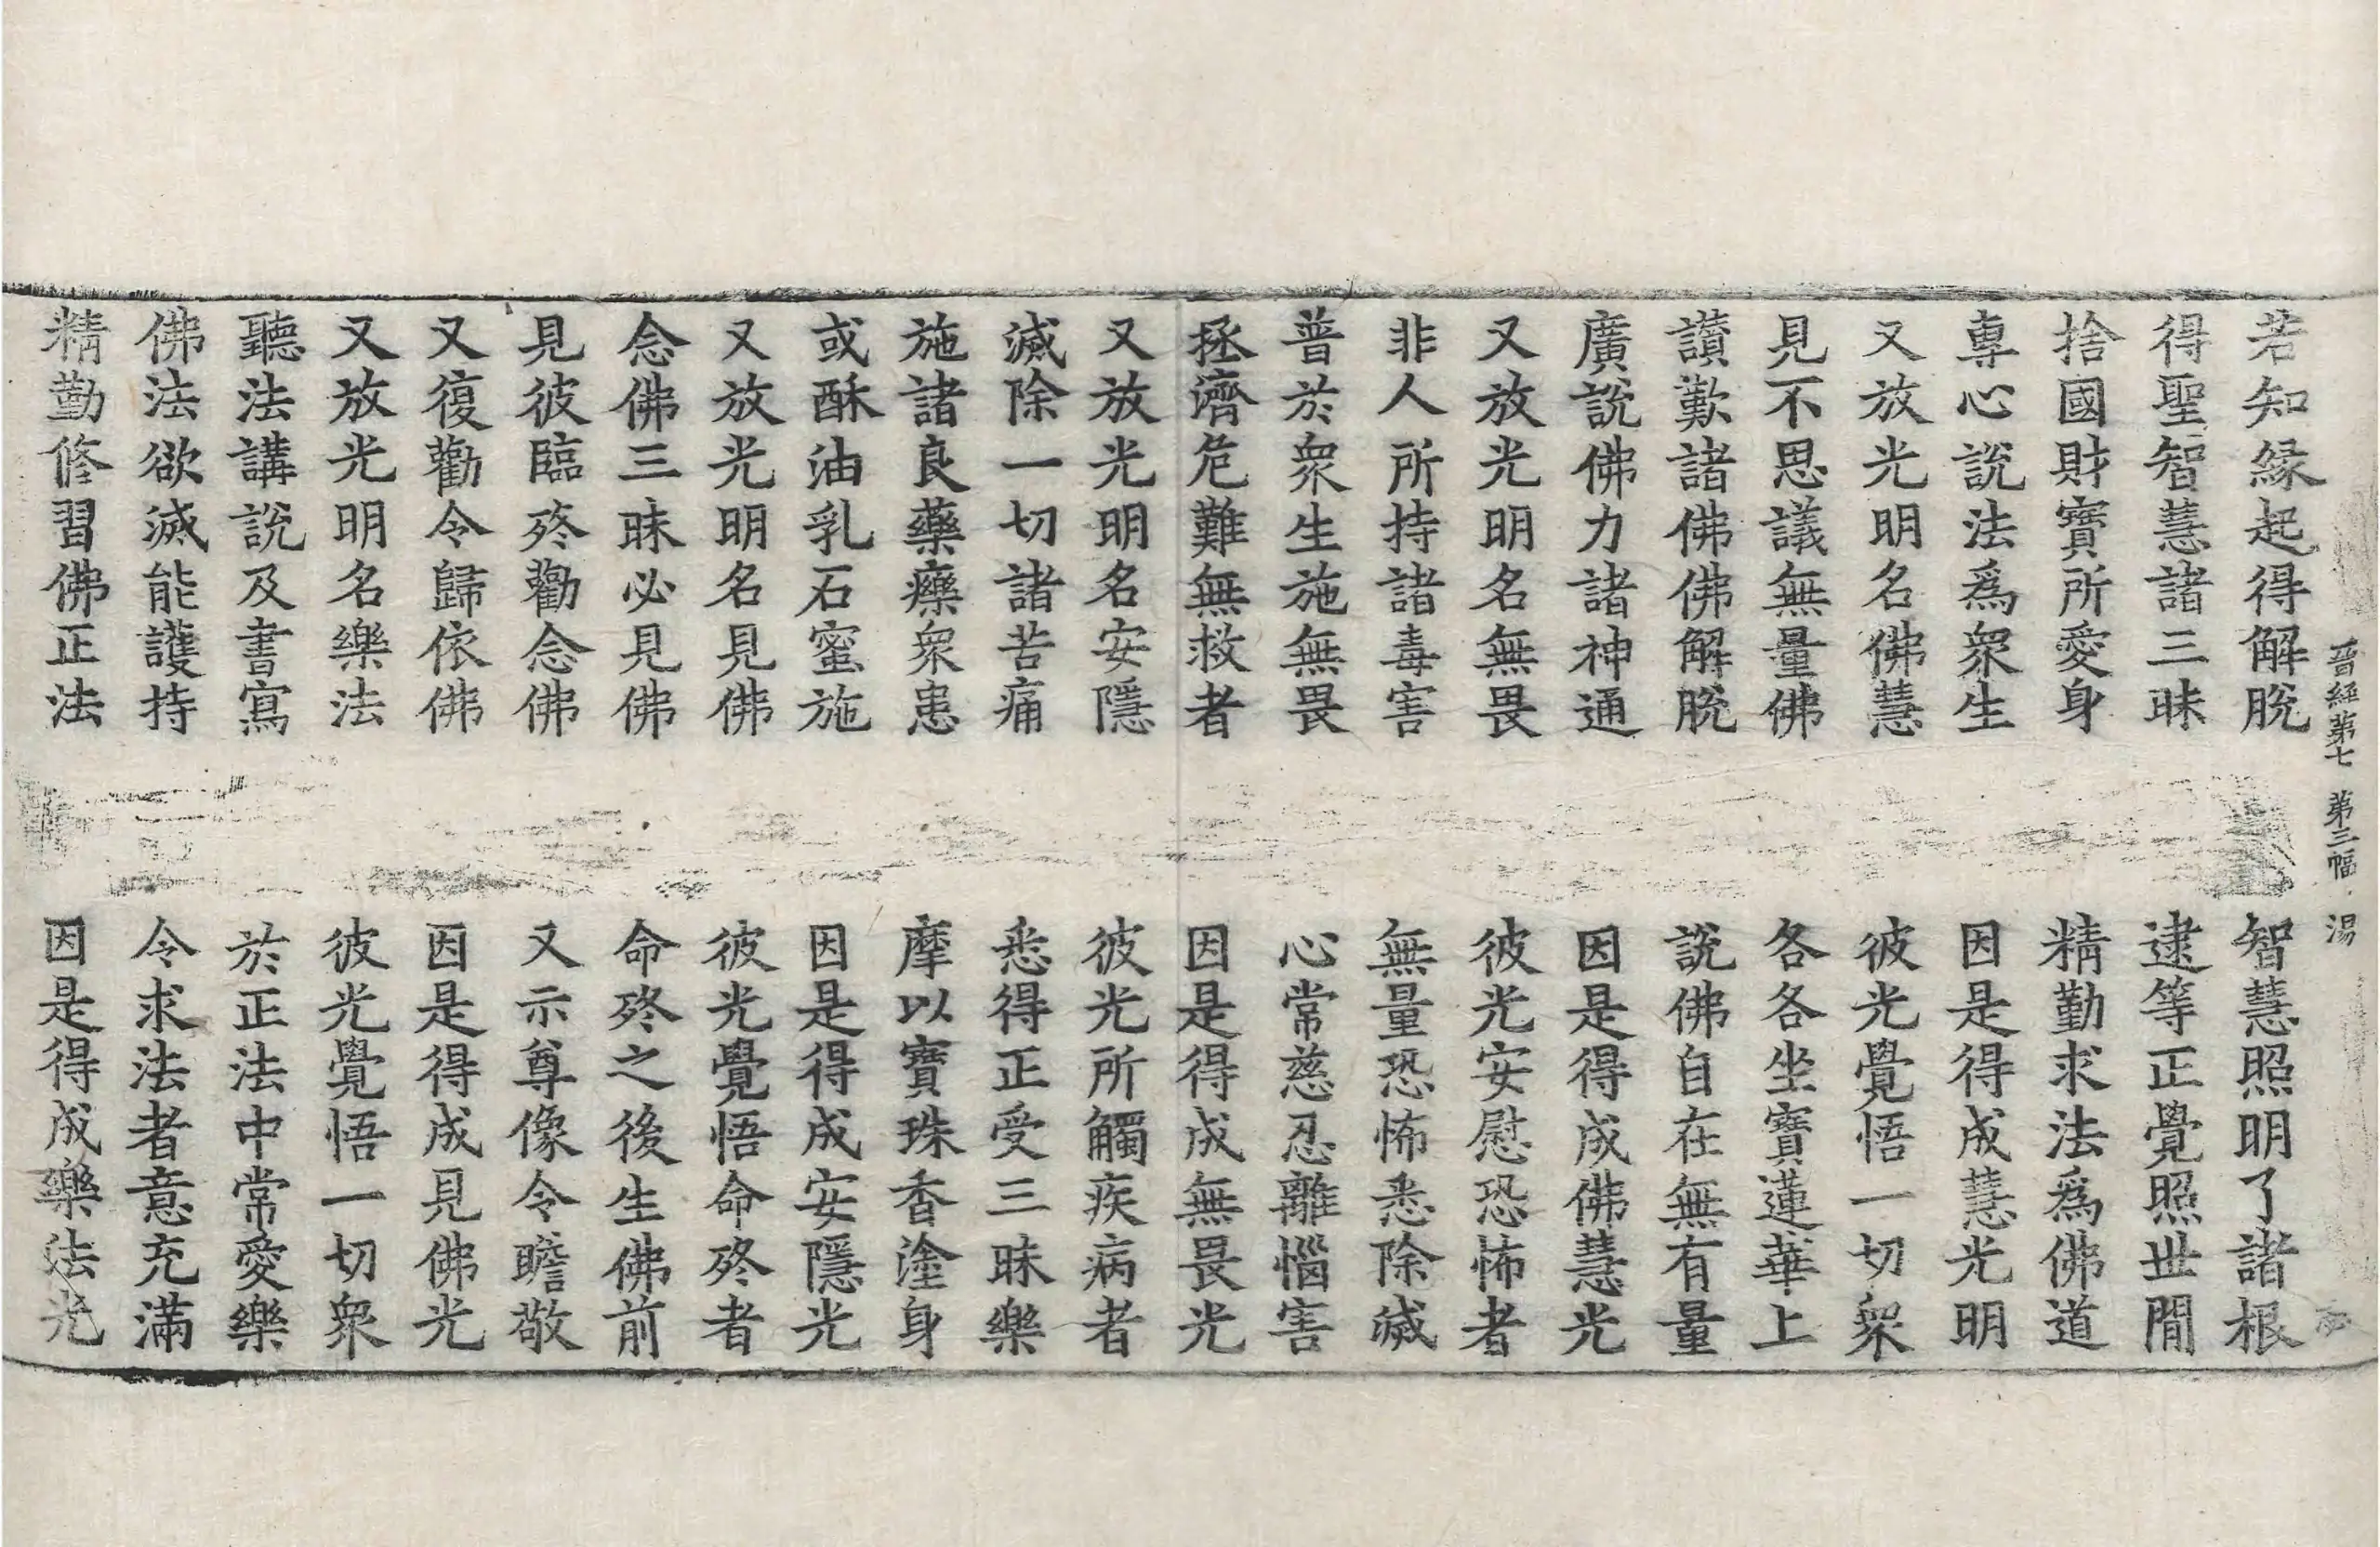 晉經第七 第三幅 湯
若知緣起得解脫 智慧照明了諸根
得聖智慧諸三昧 逮等正覺照世間
捨國財寶所愛身 精勤求法爲佛道
專心說法爲衆生 因是得成慧光明
又放光明名佛慧 彼光覺悟一切衆
見不思議無量佛 各各坐寶蓮華上
讃歎諸佛佛解脫 說佛自在無有量
廣說佛力諸神通 因是得成佛慧光
又放光明名無畏 彼光安慰恐怖者
非人所持諸毒害 無量恐怖悉除滅
普於衆生施無畏 心常慈忍離惱害
拯濟危難無救者 因是得成無畏光
又放光明名安隱 彼光所觸疾病者
滅除一切諸苦痛 悉得正受三昧樂
施諸良藥療衆患 摩以寶珠香塗身
或酥油乳石蜜施 因是得成安隱光
又放光明名見佛 彼光覺悟命終者
念佛三昧必見佛 命終之後生佛前
見彼臨終勸念佛 又示尊像令瞻敬
又復勸令歸依佛 因是得成見佛光
又放光明名樂法 彼光覺悟一切衆
聽法講說及書寫 於正法中常愛樂
佛法欲滅能護持 令求法者意充滿
精勤修習佛正法 因是得成樂法光